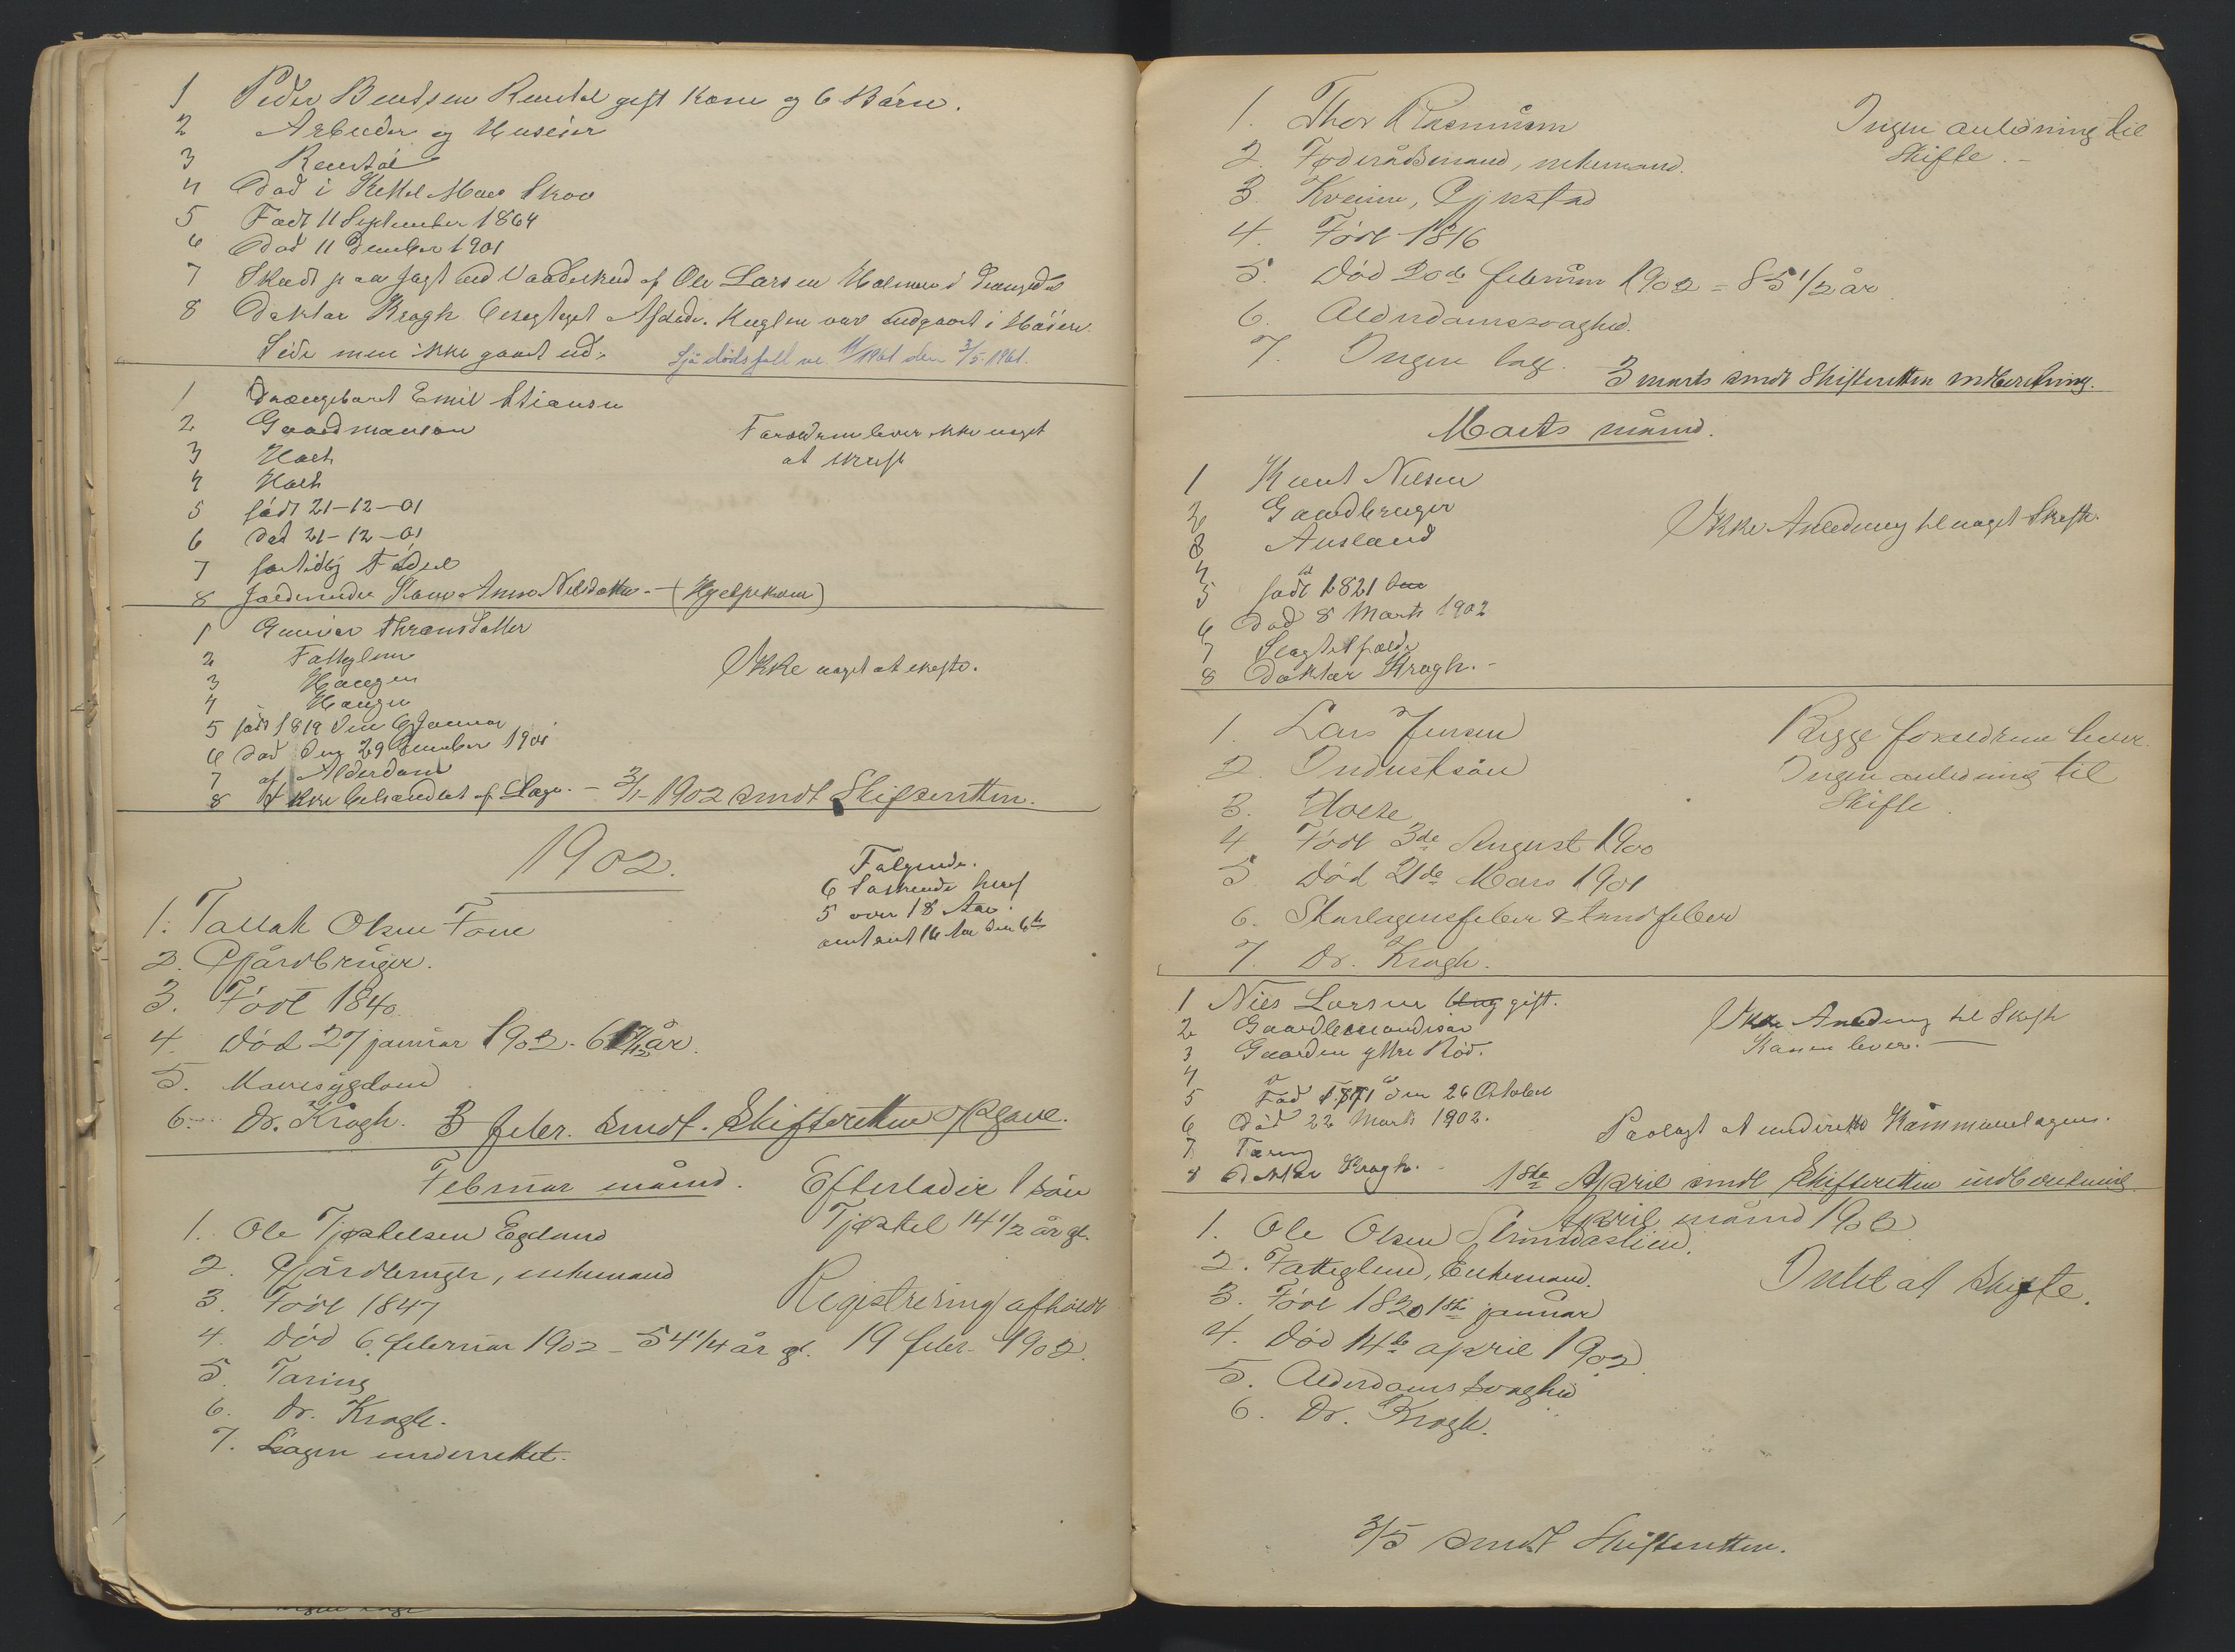 1 Peder Bentsen Rendal gift Kone og 6 Børn.
2 Arbeider og Huseier
3 Rendal
4 Død i Skov
5 Født 11 September 1864
6 Død 11 December 1901
7 Skudt paa Jagt ved Vaadeskud af Ole Larsen
8 Doktor Krogh besigtiget Afdøde. Kuglen var indgaaet i Høire
Side men ikke gaaet ud.
Sjå dödsfall nr. 11/1961 den 3/5-1961.
1 Drængebarn Emil
2 Gaardmandsøn
Forældrene lever ikke noget
at skifte
3 Holt
4 Holt
5 født 21-12-01
6 død 21-12-01
7 fortidlig Fødsel
8 Jordmoder Anna Nilsdatter - (Hjelpekone)
1 Gunvor
2 Fattiglem
Ikke noget at skifte.
3 Haugen
4 Haugen
5 født 1819 den 6 Januar
6 død den 29 December 1901
7 af Alderdom
8 Ikke behandlet af Læge. - 3/1-1902 sendt Skifteretten.
1902.
Følgende
6 heraf
5 over 18 Aar
1. Tallak Olsen
2. Gårdbruger.
3. Født 1840
4. Død 27 januar 1902.
5. Mavesygdom
6. Dr. Krogh. 3 febr. sendt. Skifteretten Opgave.
Februar måned.
Efterlader 1 søn
Tjøstel 14 1/2 år gl.
1. Ole Tjøstelsen Egeland
2. Gårdbruger, enkemand
3. Født 1847
Registrering afholdt
4. Død 6. februar 1902 - 54 1/4 år gl. 19 febr. 1902.
5. Tæring
6. Dr. Krogh.
7. Lægen underrettet.
1. Thor Rasmussen
Ingen anledning til
Skifte. -
2. Føderådsmand, enkemand.
3.
4. Født 1816
5. Død 20de februar 1902 = 85 1/2 år
6. Alderdomssvaghed.
7. Ingen læge. 3 marts sendt Skifteretten indberetning.
Marts måned.
1 Knut Nilsen
2 Gaardbruger
Ikke Anledning til noget Skifte.
3 Ausland
4
5 født 1821
6 Død 8 Marts 1902
7
8 Doktor Krogh. -
1. Lars Jensen
Begge forældrene lever.
2. Inderstsøn
Ingen anledning til
Skifte.
3. Holte
4. Født 3de August 1900
5. Død 21de Mars 1901
6. Skarlagensfeber
7. Dr. Krogh.
1 Nils Larsen gift.
Ikke Anledning til Skifte
Konen lever.
2
3 Gaarden ytre Rød.
4
5 Fød 1871 den 26 Oktober
6 Død 22 Marts 1902.
Paalagt at underrette Kommunelægen.
7 Tæring
8 Doktor Krogh. - 1ste April sendt Skifteretten indberetning.
April måned 1902
1. Ole Olsen
2. Fattiglem, Enkemand.
Intet at skifte.
3. Født 1820 1ste januar
4. Død 14de april 1902
5. Alderdomssvaghed
6. Dr. Krogh.
3/5 sendt Skifteretten.